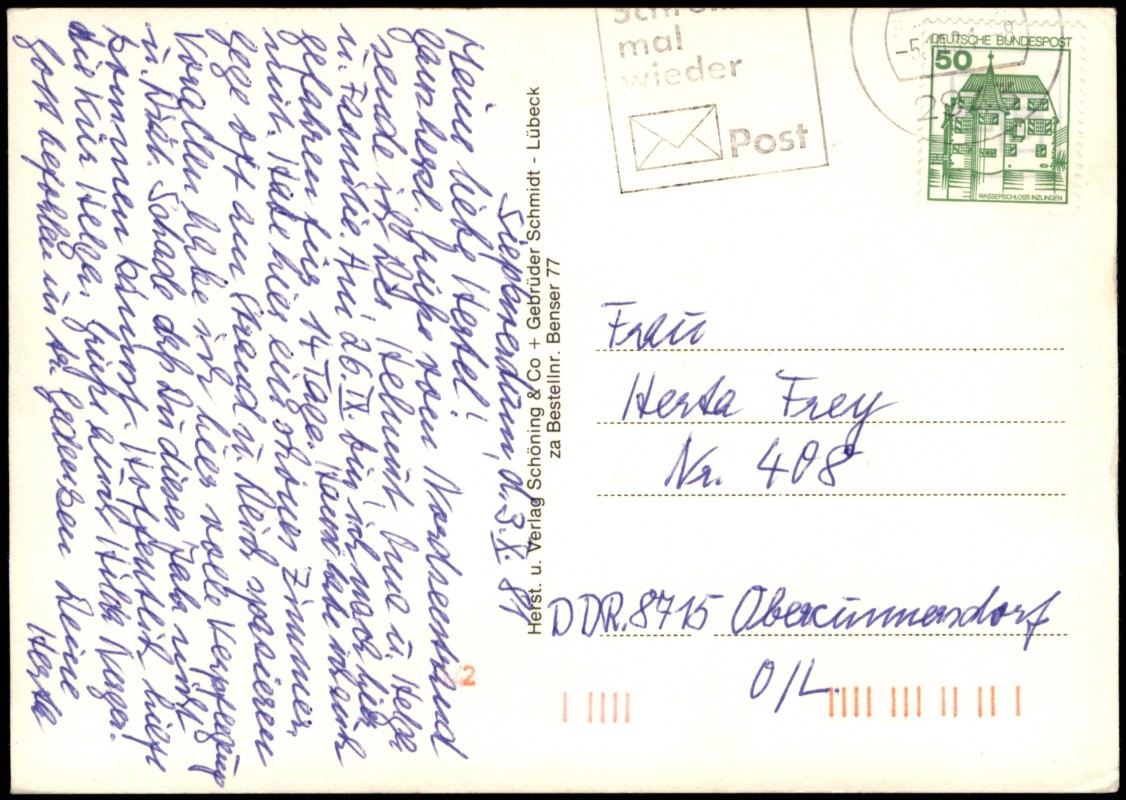 Siepmendamm, d. 3. X. 81
Meine liebe Herta!
Ganz herzl. Grüße vom Nordseestrand
sende ich Dir, Helmut, Eve u. Helge
u. Familie. Am 26. IX bin ich nach hier
gefahren für 14 Tage.
nicht. Habe hier ein schönes Zimmer,
lege oft am Strand u. Deich spazieren
Koralden habe ich hier volle Verpflegung
u. Schade daß Du dieses Jahr nicht
kommen kannst. Hoffentlich
Helga. Grüße auch Hilda
Gott befohlen in tr. Gedenken Deine
Herta
Herst. u. Verlag Schöning & Co + Gebrüder Schmidt - Lübeck
za Bestellnr. Benser 77
mal
wieder
Post
DEUTSCHE BUNDESPOST
50
WASSERSCHLOSS INZLINGEN
Frau
Herta Frey
Nr. 408
DDR. 8715 Obercunnersdorf
O/L.
42